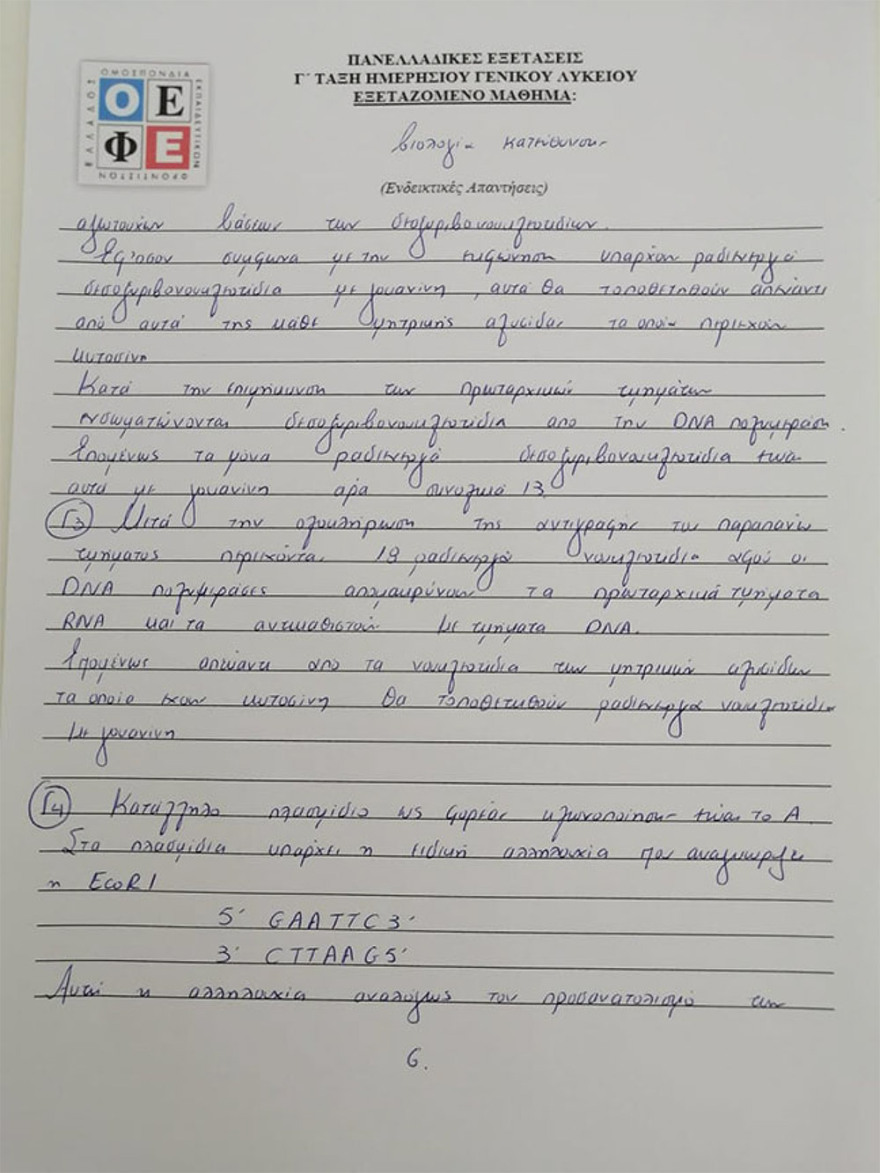 ΟΜΟΣΠΟΝΔΙΑ
ΕΚΠΑΙΔΕΥΤΙΚΩΝ
ΦΡΟΝΤΙΣΤΩΝ
ΕΛΛΑΔΟΣ
ΟΕ
ΦΕ
ΠΑΝΕΛΛΑΔΙΚΕΣ ΕΞΕΤΑΣΕΙΣ
Γ΄ ΤΑΞΗ ΗΜΕΡΗΣΙΟΥ ΓΕΝΙΚΟΥ ΛΥΚΕΙΟΥ
ΕΞΕΤΑΖΟΜΕΝΟ ΜΑΘΗΜΑ:
Βιολογία κατεύθυνσης
(Ενδεικτικές Απαντήσεις)
αζωτούχων βάσεων των δεοξυριβονουκλεοτιδίων.
Εφ'όσον σύμφωνα με την εκφώνηση υπάρχουν ραδιενεργά
δεσοξυριβονουκλεοτίδια με γουανίνη, αυτά θα τοποθετηθούν απέναντι
από αυτά της κάθε μητρικής αλυσίδας τα οποία περιέχουν
κυτοσίνη
Κατά την επιμήκυνση των πρωταρχικών τμημάτων
ενσωματώνονται δεσοξυριβονουκλεοτίδια από την DNA πολυμεράση.
Επομένως τα μόνα ραδιενεργά δεσοξυριβονουκλεοτίδια είναι
αυτά με γουανίνη άρα συνολικά 13
Γ3 Μετά την ολοκλήρωση της αντιγραφής του παραπάνω
τμήματος περιέχονται 18 ραδιενεργά νουκλεοτίδια αφού οι
DNA πολυμεράσες απομακρύνουν τα πρωταρχικά τμήματα
RNA και τα αντικαθιστούν με τμήματα DNA.
Επομένως απέναντι από τα νουκλεοτίδια των μητρικών αλυσίδων
τα οποία έχουν κυτοσίνη θα τοποθετηθούν ραδιενεργά νουκλεοτίδια
με γουανίνη
Γ4 Κατάλληλο πλασμίδιο ως φορέας κλωνοποίησης είναι το Α.
Στα πλασμίδια υπάρχει η ειδική αλληλουχία που αναγνωρίζει
η EcoRI
5΄ GAATTC 3΄
3΄ CTTAAG 5΄
Αυτή η αλληλουχία αναλόγως τον προσανατολισμό των
6.